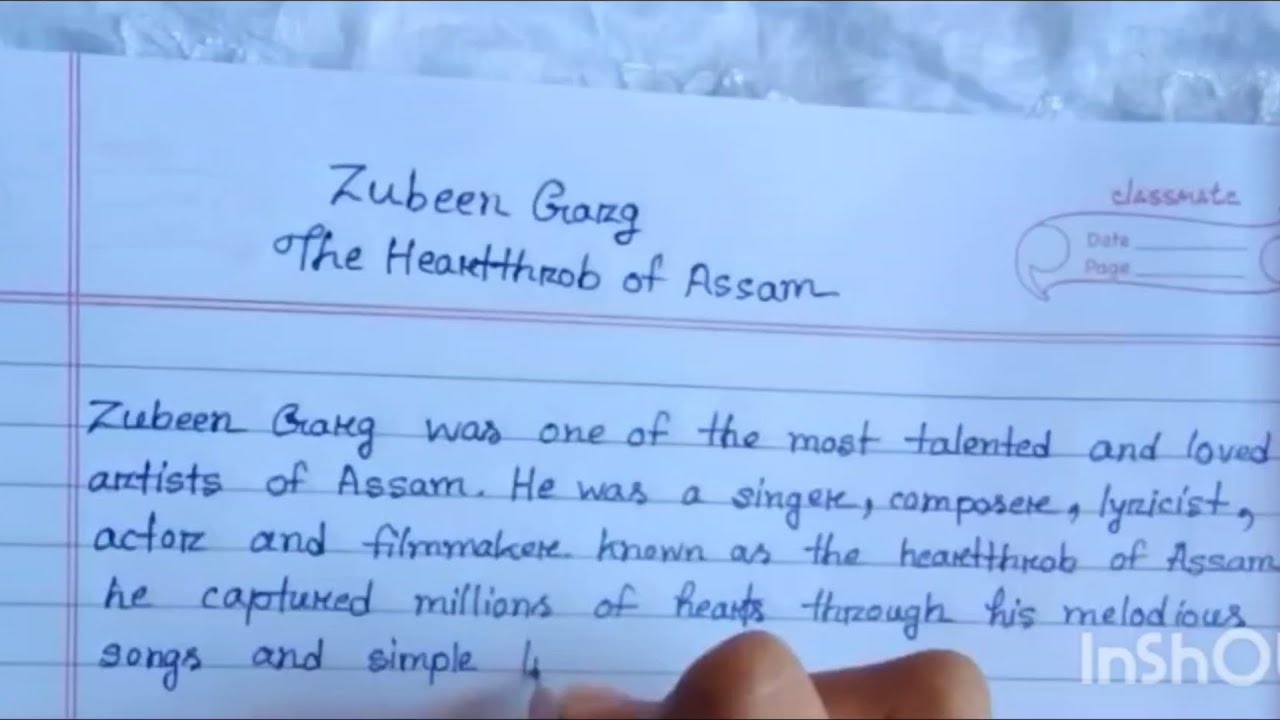 Zubeen Garg
The Heartthrob of Assam
classmate
Date
Page
Zubeen Garg was one of the most talented and loved
artists of Assam. He was a singer, composer, lyricist,
actor and filmmaker. known as the heartthrob of Assam
he captured millions of hearts through his melodious
songs and simple
InShO